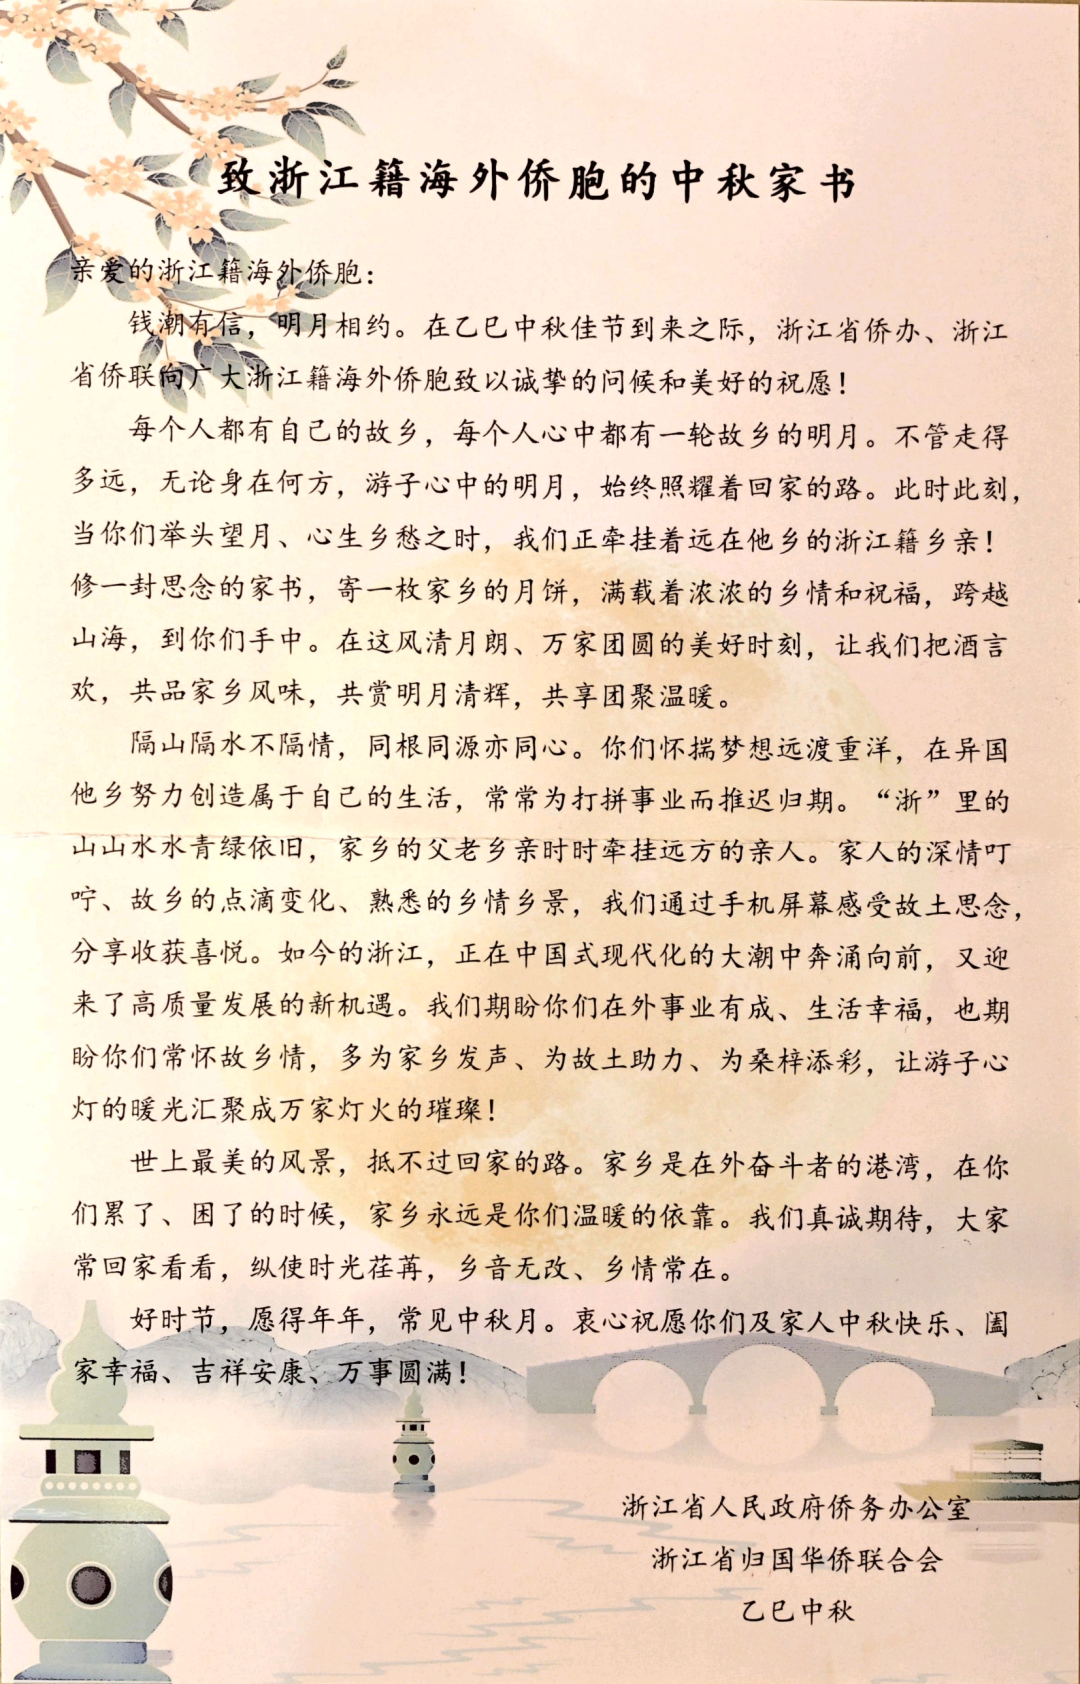 致浙江籍海外侨胞的中秋家书
亲爱的浙江籍海外侨胞：
钱潮有信，明月相约。在乙巳中秋佳节到来之际，浙江省侨办、浙江
省侨联向广大浙江籍海外侨胞致以诚挚的问候和美好的祝愿！
每个人都有自己的故乡，每个人心中都有一轮故乡的明月。不管走得
多远，无论身在何方，游子心中的明月，始终照耀着回家的路。此时此刻，
当你们举头望月、心生乡愁之时，我们正牵挂着远在他乡的浙江籍乡亲！
修一封思念的家书，寄一枚家乡的月饼，满载着浓浓的乡情和祝福，跨越
山海，到你们手中。在这风清月朗、万家团圆的美好时刻，让我们把酒言
欢，共品家乡风味，共赏明月清辉，共享团聚温暖。
隔山隔水不隔情，同根同源亦同心。你们怀揣梦想远渡重洋，在异国
他乡努力创造属于自己的生活，常常为打拼事业而推迟归期。“浙”里的
山山水水青绿依旧，家乡的父老乡亲时时牵挂远方的亲人。家人的深情叮
咛、故乡的点滴变化、熟悉的乡情乡景，我们通过手机屏幕感受故土思念，
分享收获喜悦。如今的浙江，正在中国式现代化的大潮中奔涌向前，又迎
来了高质量发展的新机遇。我们期盼你们在外事业有成、生活幸福，也期
盼你们常怀故乡情，多为家乡发声、为故土助力、为桑梓添彩，让游子心
灯的暖光汇聚成万家灯火的璀璨！
世上最美的风景，抵不过回家的路。家乡是在外奋斗者的港湾，在你
们累了、困了的时候，家乡永远是你们温暖的依靠。我们真诚期待，大家
常回家看看，纵使时光荏苒，乡音无改、乡情常在。
好时节，愿得年年，常见中秋月。衷心祝愿你们及家人中秋快乐、阖
家幸福、吉祥安康、万事圆满！
浙江省人民政府侨务办公室
浙江省归国华侨联合会
乙巳中秋